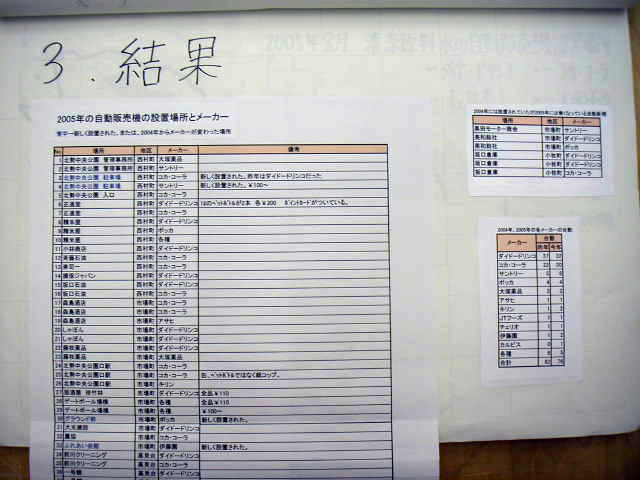 3．結果
2005年の自動販売機の設置場所とメーカー
青字→新しく設置された、または、2004年からメーカーが変わった場所
No. 場所 地区 メーカー 備考
1 北勢中央公園 管理事務所 西村町 大塚薬品
2 北勢中央公園 管理事務所 西村町 サントリー
3 北勢中央公園 駐車場 西村町 コカ・コーラ 新しく設置された。昨年はダイドードリンコだった
4 北勢中央公園 駐車場 西村町 サントリー 新しく設置された。¥100～
5 北勢中央公園 入口 西村町 コカ・コーラ
6 正進堂 西村町 ダイドードリンコ
7 正進堂 西村町 コカ・コーラ
8 精米屋 西村町 ダイドードリンコ
9 精米屋 西村町 ポッカ
10 精米屋 西村町 各種
11 小林商店 西村町 ダイドードリンコ
12 斉藤石油 西村町 コカ・コーラ
13 寿司一 西村町 コカ・コーラ
14 西村町 ダイドードリンコ
15 坂口石油 西村町 ダイドードリンコ
16 坂口石油 西村町 コカ・コーラ
17 森島酒店 市場町 コカ・コーラ
18 森島酒店 市場町 コカ・コーラ
19 森島酒店 市場町 アサヒ
20 しゃぼん 市場町 ダイドードリンコ
21 しゃぼん 市場町 ダイドードリンコ
22 藤牧薬品 市場町 ダイドードリンコ
23 藤牧薬品 市場町 大塚薬品
24 北勢中央公園口駅 市場町 コカ・コーラ
25 北勢中央公園口駅 市場町 コカ・コーラ 缶、ペットボトルではなく紙コップ。
26 北勢中央公園口駅 市場町 キリン
27 市場町 ダイドードリンコ 全品¥110
28 ゲートボール場横 市場町 各種 全品¥110
29 ゲートボール場横 市場町 各種 ¥100～
30 グラウンド前 市場町 ポッカ 新しく設置された。
31 市場町 ダイドードリンコ
32 市場町 コカ・コーラ
33 ふれあい会館 市場町 伊藤園 新しく設置された。
34 前川クリーニング 高見台 ダイドードリンコ
35 前川クリーニング 高見台 コカ・コーラ
36 一号棟 高見台 ダイドードリンコ
2004年には設置されていたが2005年には無くなっている自動販売機
場所 地区 メーカー
黒田モーター商会 市場町 サントリー
美和総社 市場町 ダイドードリンコ
美和総社 市場町 ポッカ
坂口倉庫 小牧町 ダイドードリンコ
坂口倉庫 小牧町 サントリー
坂口倉庫 小牧町 コカ・コーラ
2004年、2005年の各メーカーの台数
メーカー 台数
昨年 今年
ダイドードリンコ
コカ・コーラ
サントリー
ポッカ 4 4
大塚薬品
アサヒ 1 1
キリン
JTフーズ 1 1
チェリオ 1 1
伊藤園 1 2
カルピス 0 1
各種
合計